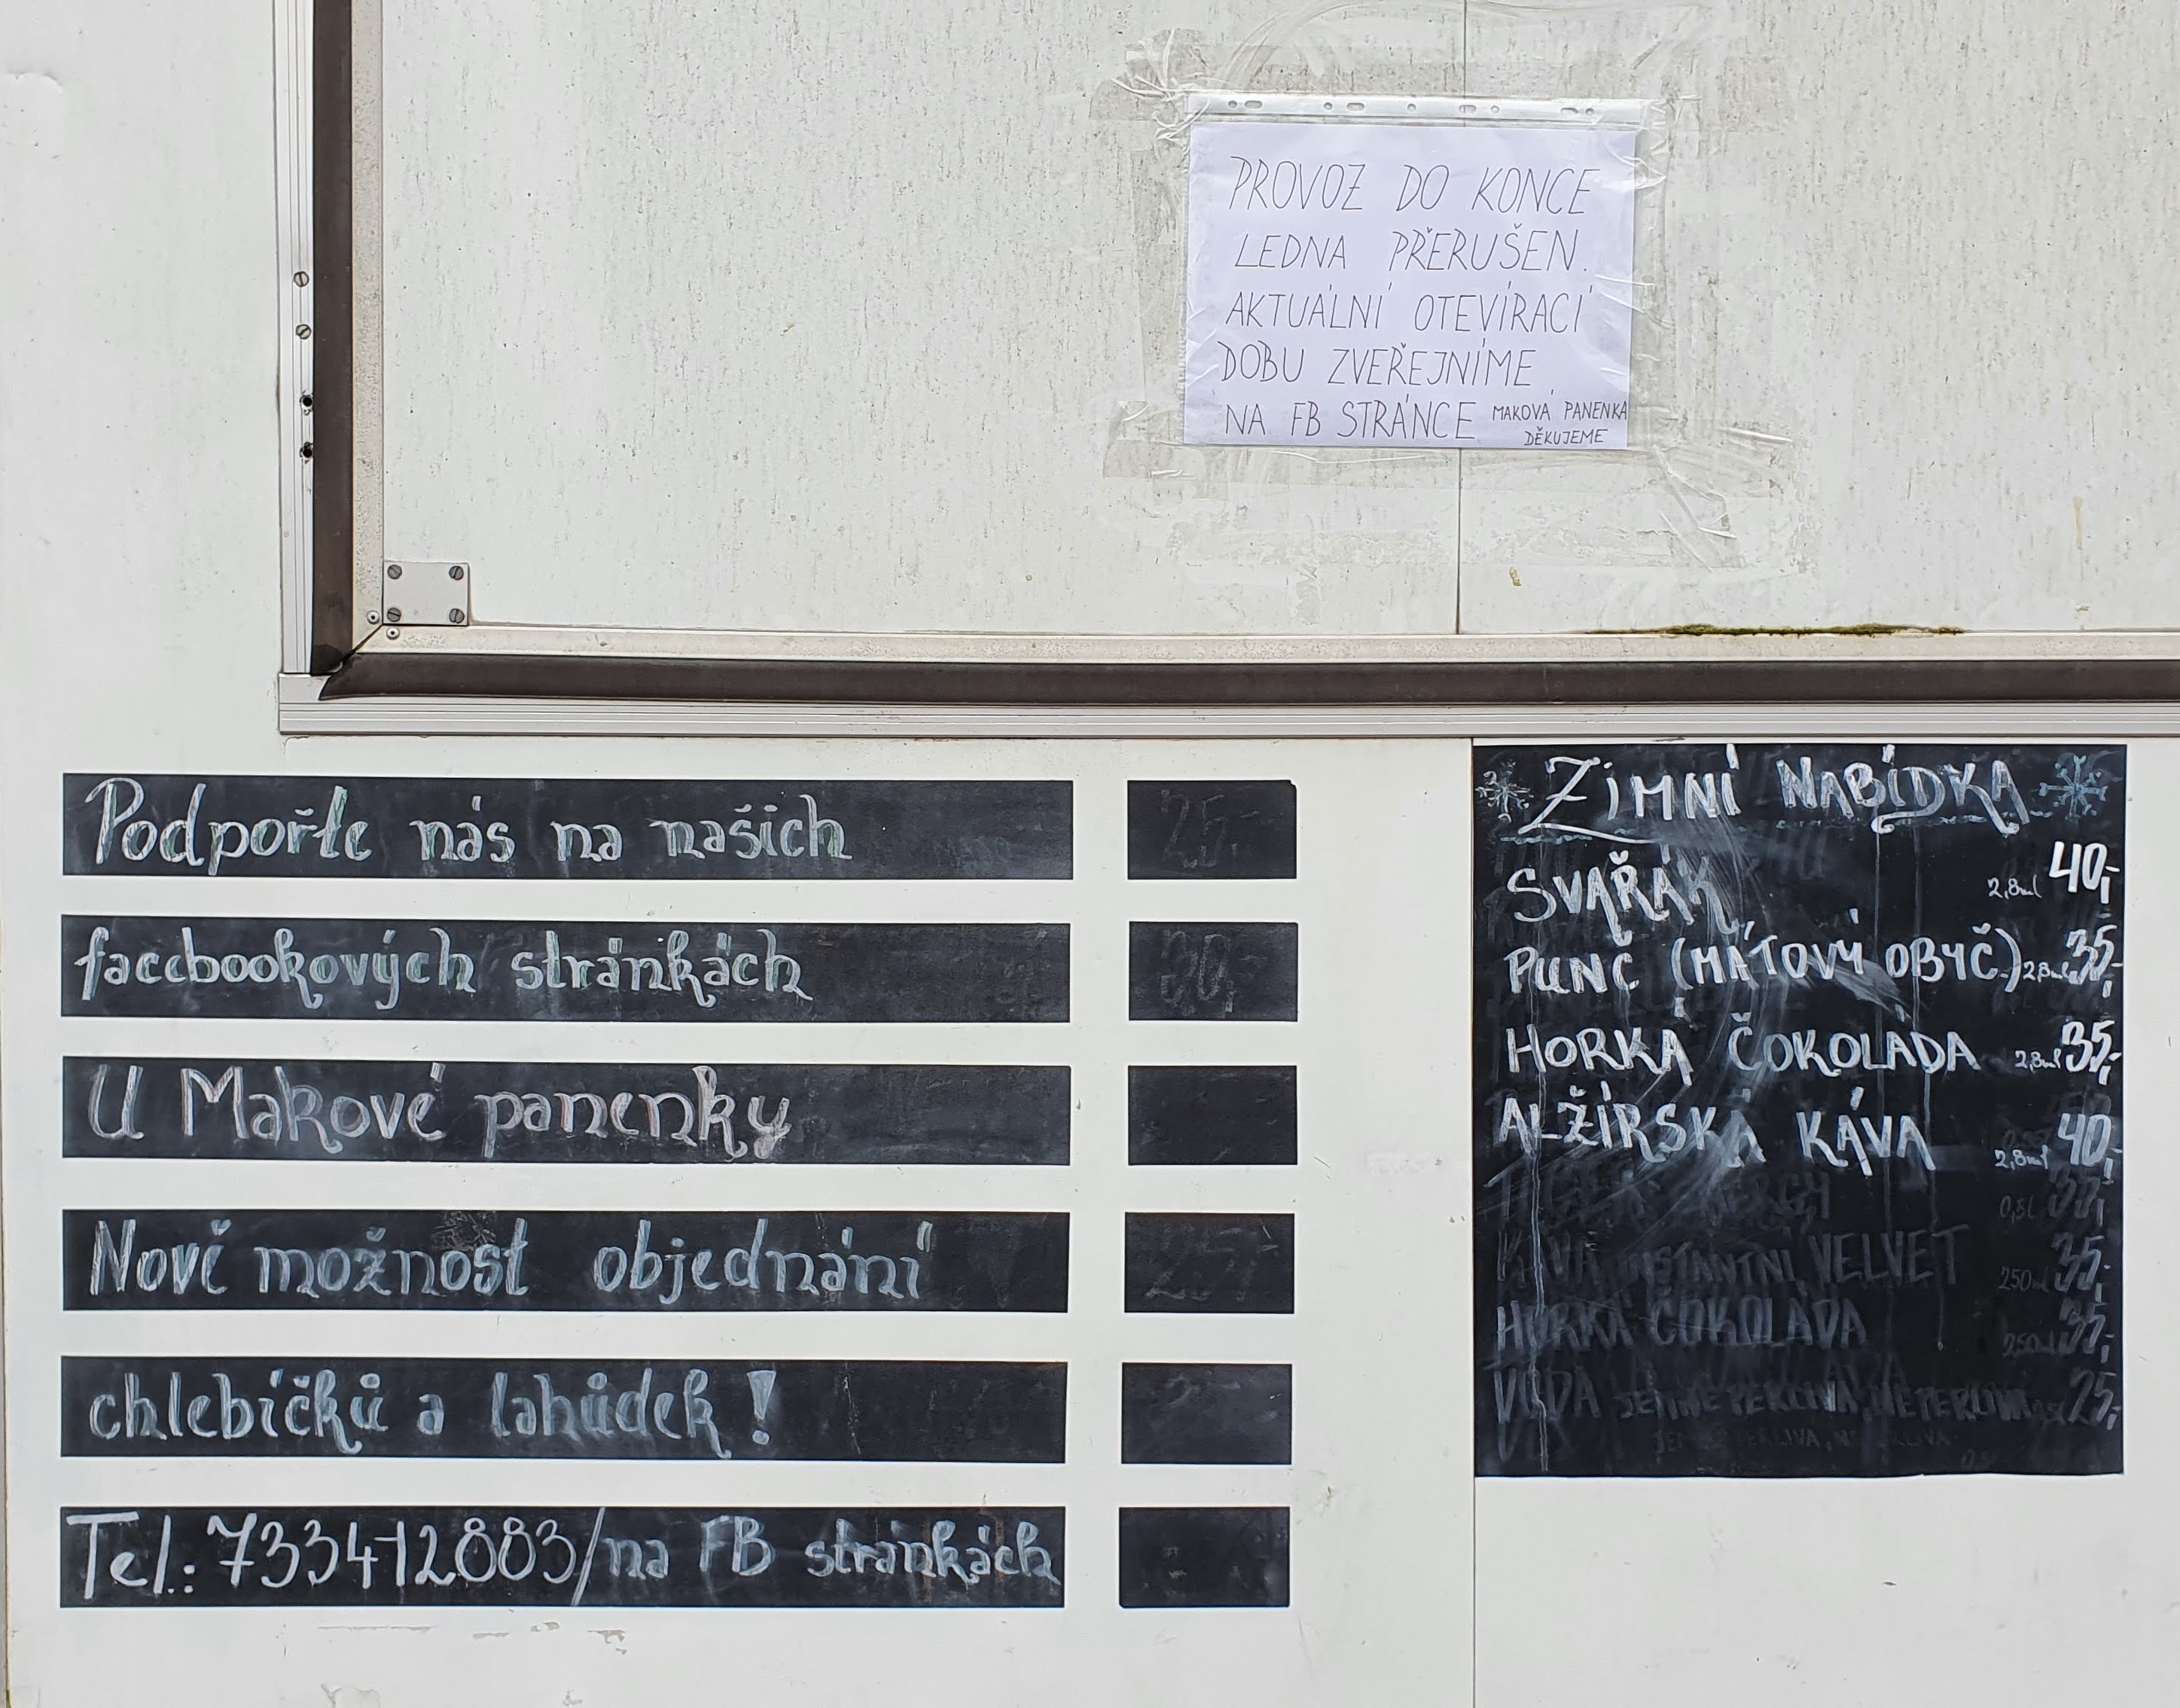 PROVOZ DO KONCE
LEDNA PŘERUŠEN.
AKTUÁLNÍ OTEVÍRACÍ
DOBU ZVEŘEJNÍME
NA FB STRÁNCE MAKOVÁ PANENKA
DĚKUJEME
Podpořte nás na našich
25,-
facebookových stránkách
30,-
U Makové panenky
Nově možnost objednání
25,-
chlebíčků a lahůdek!
Tel.: 733412883/na FB stránkách
ZIMNÍ NABÍDKA
SVAŘÁK 2,8ml 40,-
PUNČ (MÁTOVÝ OBYČ) 2,8ml 35,-
HORKÁ ČOKOLÁDA 2,8ml 35,-
ALŽÍRSKÁ KÁVA 2,8ml 40,-
0,5l
KÁVA INSTANTNÍ VELVET 250ml 35,-
HORKÁ ČOKOLÁDA 250ml 35,-
VODA JEMNĚ PERLIVÁ, NEPERLIVÁ 25,-